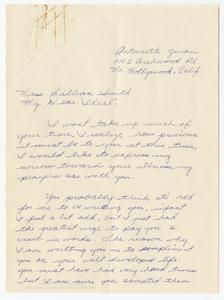 Antoinette
No. Hollywood, Calif.
Miss Lillian Smith
My Dear Ideal:
I wont take up much of
your time, I realize how precious
it must be to you at this time,
I would like to express my
toward your illness, my
prayers are with you.
You probably think it's odd
for me to be writing you, infact
I felt a bit odd, but I just had
the greatest urge to pay you a
visit in words. The reason why
I am writing you is to compliment
you on your well developed life.
you must have had very hard times
but I am sure you accepted them